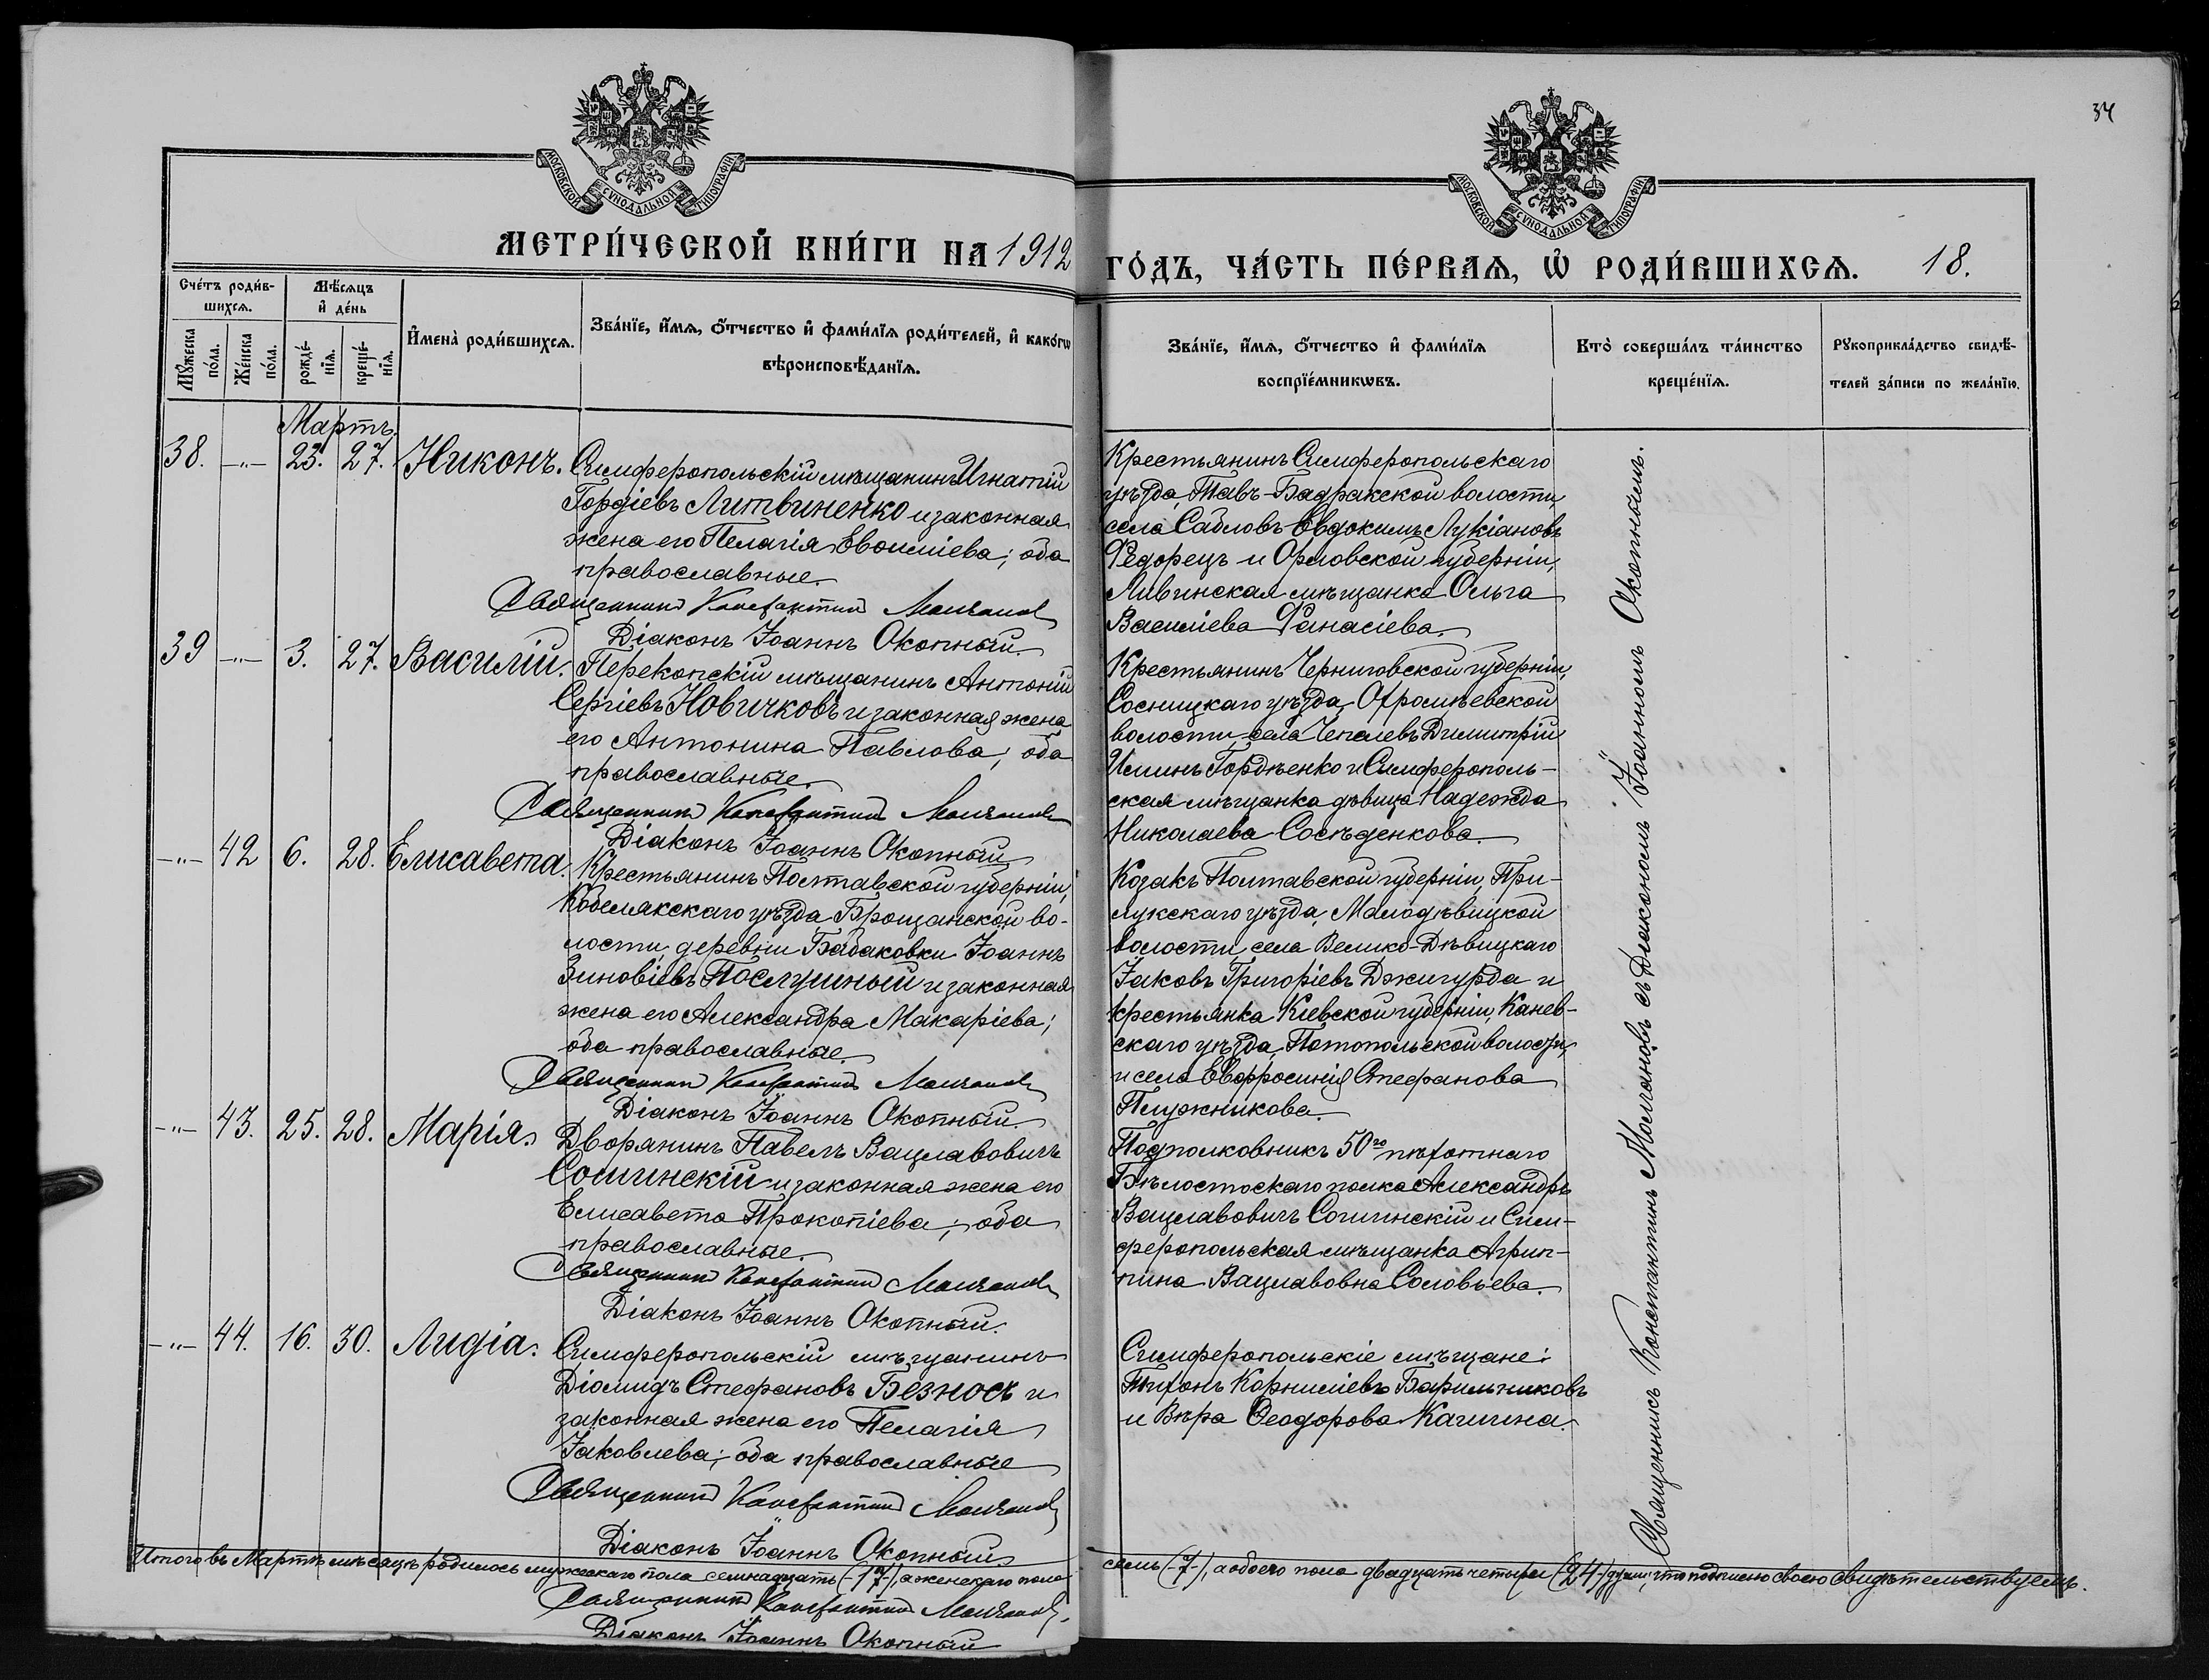 34
МОСКОВСКОЙ СѴНОДАЛЬНОЙ ТИПОГРАФІИ
МОСКОВСКОЙ СѴНОДАЛЬНОЙ ТИПОГРАФІИ
МЕТРИ́ЧЕСКОЙ КНИ́ГИ НА 1912
ГО́ДЪ, ЧА́СТЬ ПЕ́РВАѦ, Ѡ҆ РОДИ́ВШИХСѦ. 18.
Сче́тъ роди́в-
шихсѧ.
Мꙋ́жеска
по́ла.
Же́нска
по́ла.
Мѣ́сѧцъ
и҆ де́нь
рожде́-
нїѧ.
креще́-
нїѧ.
И҆мена̀ роди́вшихсѧ.
Зва́нїе, и҆́мѧ, ѻ҆́тчество и҆ фами́лїѧ роди́телей, и҆ како́гѡ
вѣроисповѣ́данїѧ.
Зва́нїе, и҆́мѧ, ѻ҆́тчество и҆ фами́лїѧ
воспрїе́мникѡвъ.
Кто̀ соверша́лъ та́инство
креще́нїѧ.
Рꙋкоприкла́дство свидѣ́-
телей за́писи по жела́нїю.
Мартъ.
38. -„- 23. 27. Никонъ.
Симферопольскій мѣщанинъ Игнатій
Гордіевъ Литвиненко и законная
жена его Пелагія Евоиміева; оба
православные.
Священникъ Константинъ Молчановъ
Діаконъ Іоаннъ Окопный.
Крестьянинъ Симферопольскаго
уѣзда, Тавъ-Бадракской волости,
села Сабловъ Евдокимъ Лукіановъ
Федорецъ и Орловской губерніи,
Ливинская мѣщанка Ольга
Василіева Фанасіева.
39 -„- 3. 27. Василій.
Перекопскій мѣщанинъ Антоній
Сергіевъ Новичковъ и законная жена
его Антонина Павлова; оба
православные.
Священникъ Константинъ Молчановъ
Діаконъ Іоаннъ Окопный
Крестьянинъ Черниговской губерніи,
Сосницкаго уѣзда, Охромѣевской
волости села Чепелевъ Димитрій
Илiинъ Гордѣенко и Симферополь-
ская мѣщанка дѣвица Надежда
Николаева Сосѣденкова.
-„- 42 6. 28. Елисавета.
Крестьянинъ Полтавской губерніи,
Кобелякскаго уѣзда Брощанской во-
лости, деревни Бабаковки Іоаннъ
Зиновіевъ Послушный и законная
жена его Александра Макаріева;
оба православные.
Священникъ Константинъ Молчановъ
Діаконъ Іоаннъ Окопный.
Козакъ Полтавской губерніи, При-
лукскаго уѣзда, Малодѣвицкой
волости, села Велико-Дѣвицкаго
Іаковъ Григоріевъ Джигурда и
крестьянка Кіевской губерніи, Канев-
скаго уѣзда, Потопольской волости,
и села Евфросинія Стефанова
Плужникова.
-„- 43. 25. 28. Марія.
Дворянинъ Павелъ Вацлавовичъ
Сошинскій и законная жена его
Елисавета Прокопіева; оба
православные.
Священникъ Константинъ Молчановъ
Діаконъ Іоаннъ Окопный.
Подполковникъ 50го пѣхотнаго
Бѣлостоскаго полка Александръ
Вацлавовичъ Сошинскій и Сим-
феропольская мѣщанка Агрип-
пина Вацлавовна Соловьева.
-„- 44. 16. 30. Лидіа.
Симферопольскій мѣщанинъ
Діомидъ Стефановъ Безносъ и
законная жена его Пелагія
Іаковлева; оба православные
Священникъ Константинъ Молчановъ
Діаконъ Іоаннъ Окопный
Симферопольскіе мѣщане:
Тихонъ Корниліевъ Барильниковъ
и Вѣра Ѳеодорова Кашина.
Священникъ Константинъ Молчановъ съ Діакономъ Іоанномъ Окопнымъ.
Итого въ Мартѣ мѣсяцѣ родилось мужескаго пола семнадцать (-17-), а женскаго пола
семь (-7-), а обоего пола двадцать четыре (-24-) души, что подписью своею свидѣтельствуемъ.
Священникъ Константинъ Молчановъ.
Діаконъ Іоаннъ Окопный